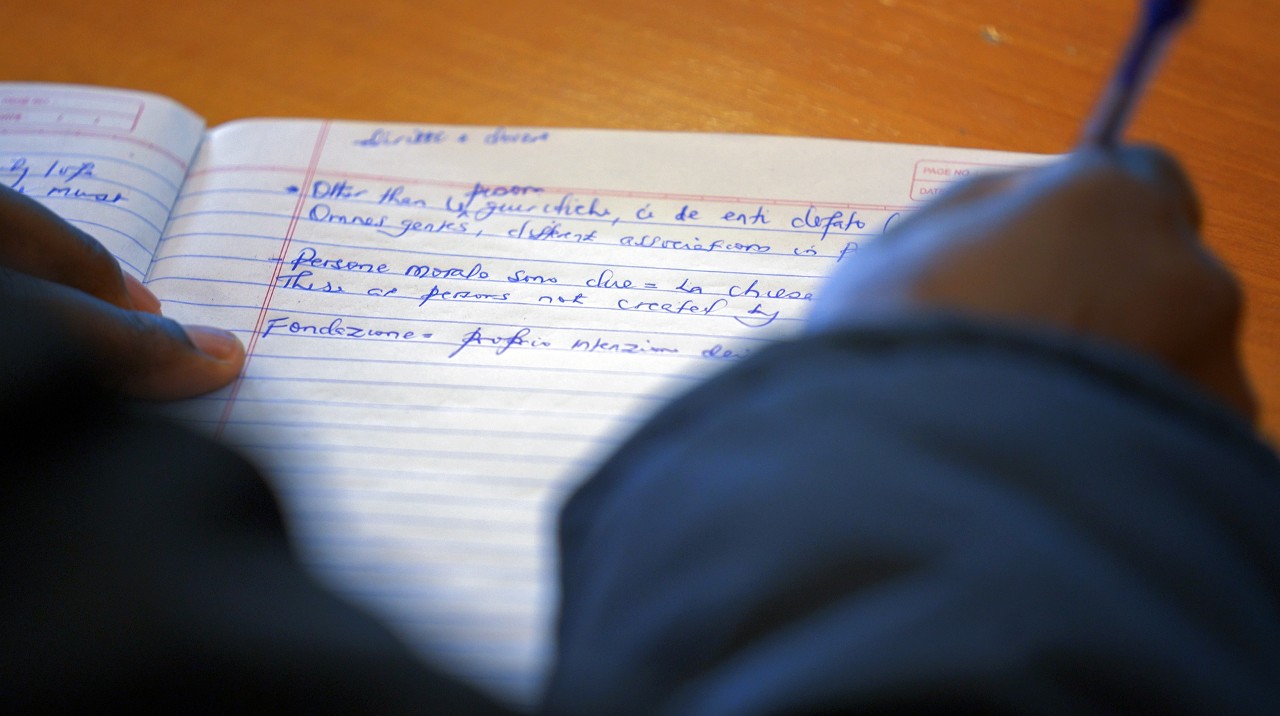 PAGE NO
PAGE NO
DAT
must
Diritto e dovere
Other than
person
giuridiche, ci
de enti defato (
Omnes gentes, different associations in
Persone morale sono due = La chiesa
These are persons not created by
Fondazione = proprio intenzione dei